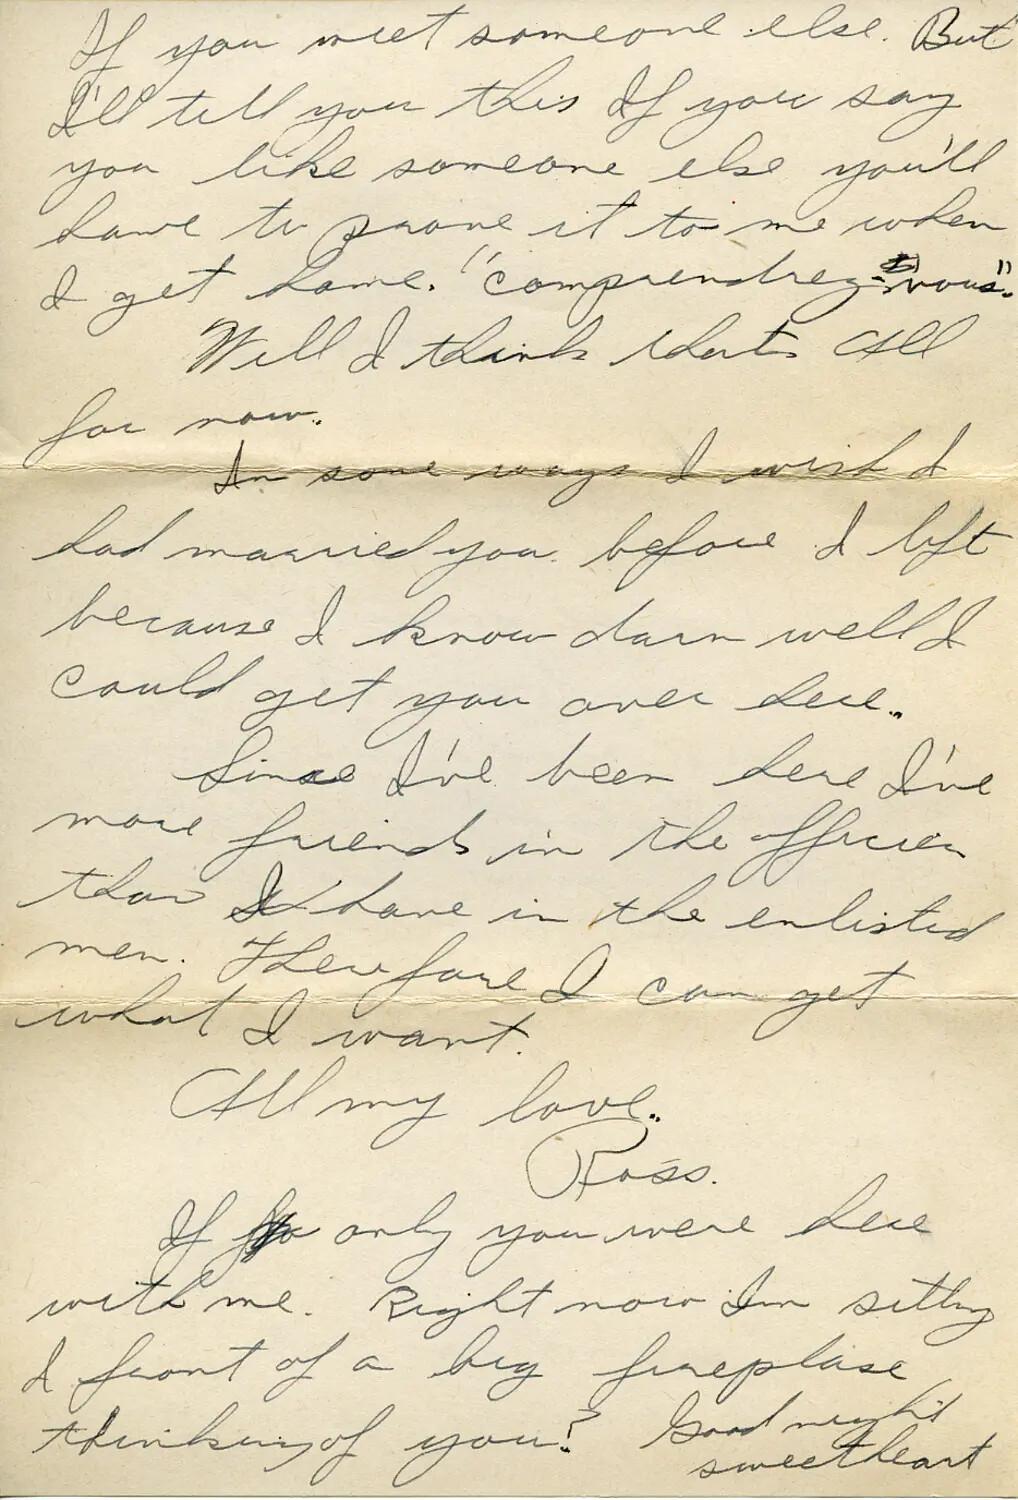 If you meet someone else. But
I'll tell you this If you say
you like someone else you'll
have to prove it to me when
I get home. "comprendrez-vous".
Well I think thats All
for now.
In some ways I wish I
had married you before I left
because I know darn well I
could get you over here.
Since I've been here I've
more friends in the officer
than I have in the enlisted
men. Therefore I can get
what I want.
All my love.
Ross.
If only you were here
with me. Right now Im sitting
I front of a big fireplase
thinking of you? Good night
sweetheart